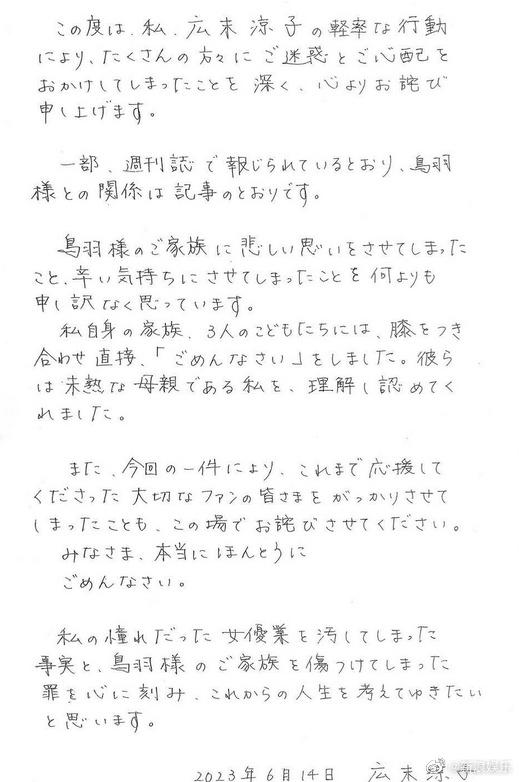 この度は、私、広末涼子の軽率な行動
により、たくさんの方々にご迷惑とご心配を
おかけしてしまったことを深く、心よりお詫び
申し上げます。
一部、週刊誌で報じられているとおり、鳥羽
様との関係は記事のとおりです。
鳥羽様のご家族に悲しい思いをさせてしまった
こと、辛い気持ちにさせてしまったことを何よりも
申し訳なく思っています。
私自身の家族、3人のこどもたちには、膝をつき
合わせ直接、「ごめんなさい」をしました。彼ら
は未熟な母親である私を、理解し認めてく
れました。
また、今回の一件により、これまで応援して
くださった大切なファンの皆さまをがっかりさせて
しまったことも、この場でお詫びさせてください。
みなさま、本当にほんとうに
ごめんなさい。
私の憧れだった女優業を汚してしまった
事実と、鳥羽様のご家族を傷つけてしまった
罪を心に刻み、これからの人生を考えてゆきたい
と思います。
2023年6月14日 広末涼子
@新浪娱乐